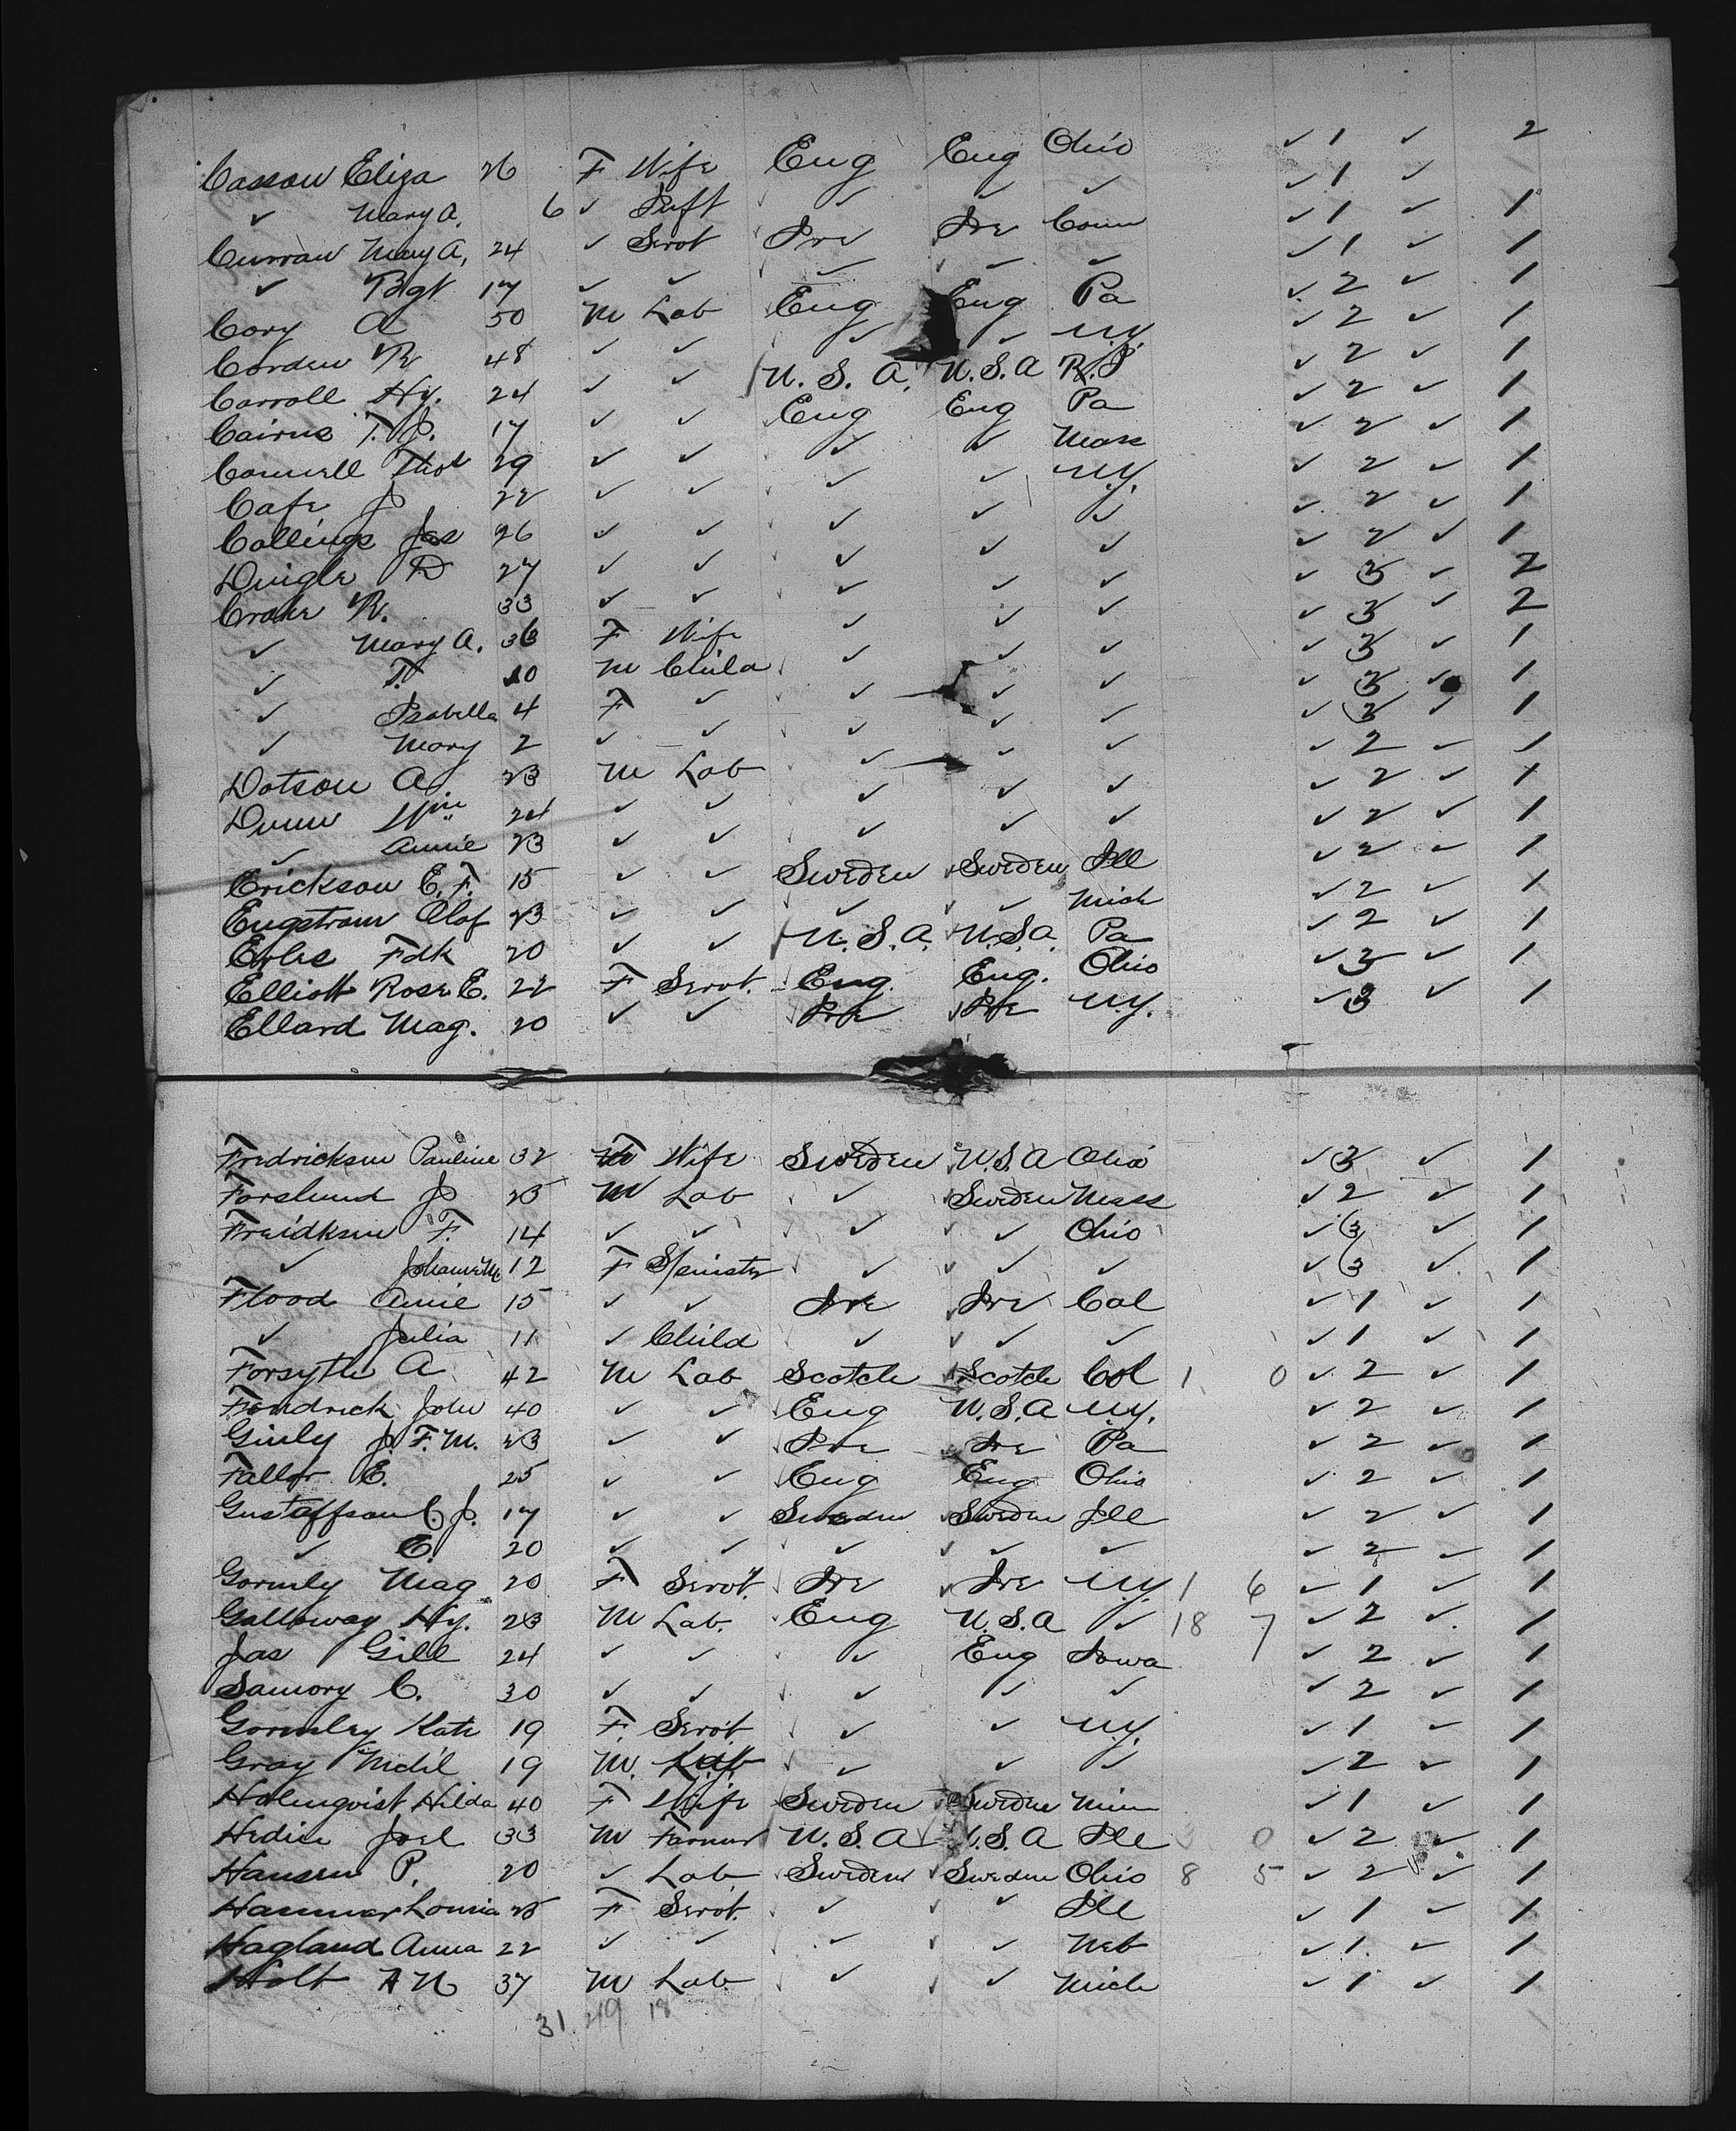 Casson Eliza 26 F Wife Eng Eng Ohio ✓ 1 ✓ 2
✓ Mary A. 6 ✓ Inft ✓ ✓ ✓ ✓ 1 ✓
Curran Mary A, 24 ✓ Servt Ire Ire Conn ✓ 1 ✓ 1
✓ Bgt 17 ✓ ✓ ✓ ✓ ✓ ✓ 1 ✓ 1
Cory A 50 M Lab Eng Eng Pa ✓ 2 ✓ 1
Corden R 48 ✓ ✓ ✓ ✓ N.Y. ✓ 2 ✓ 1
Carroll Hy. 24 ✓ ✓ U.S.A. U.S.A R.I ✓ 2 ✓ 1
Cairns T.J. 17 ✓ ✓ Eng Eng Pa ✓ 2 ✓ 1
Connell Thos 29 ✓ ✓ ✓ ✓ Mass ✓ 2 ✓ 1
Cafe J 22 ✓ ✓ ✓ ✓ N.Y. ✓ 2 ✓ 1
Collings Jas 26 ✓ ✓ ✓ ✓ ✓ ✓ 2 ✓ 1
Dingle D 27 ✓ ✓ ✓ ✓ ✓ ✓ 2 ✓ 1
Crake R. 33 ✓ ✓ ✓ ✓ ✓ ✓ 3 ✓ 2
✓ Mary A. 36 F Wife ✓ ✓ ✓ ✓ 3 ✓ 2
✓ T. 10 M Child ✓ ✓ ✓ ✓ 3 ✓ 1
✓ Isabella 4 F ✓ ✓ ✓ ✓ ✓ 3 ✓ 1
✓ Mary 2 ✓ ✓ ✓ ✓ ✓ ✓ 3 ✓ 1
Dotson A 23 M Lab ✓ ✓ ✓ ✓ 2 ✓ 1
Dunn Wm 24 ✓ ✓ ✓ ✓ ✓ ✓ 2 ✓ 1
✓ Annie 23 ✓ ✓ ✓ ✓ ✓ ✓ 2 ✓ 1
Erickson E.F. 15 ✓ ✓ Sweden Sweden Ill ✓ 2 ✓ 1
Engstrom Olof 23 ✓ ✓ ✓ ✓ Mich ✓ 2 ✓ 1
Erles Fdk 20 ✓ ✓ U.S.A. U.S.A. Pa ✓ 2 ✓ 1
Elliott Rose E. 22 F Servt. Eng. Eng. Ohio ✓ 3 ✓ 1
Ellard Mag. 20 ✓ ✓ Ire Ire N.Y. ✓ 3 ✓ 1
Fredricksen Pauline 32 F Wife Sweden U.S.A Ohio ✓ 3 ✓ 1
Forslund J 25 M Lab ✓ Sweden Mass ✓ 2 ✓ 1
Freidksen F. 14 ✓ ✓ ✓ ✓ Ohio ✓ 3 ✓ 1
✓ 12 F Spinster ✓ ✓ ✓ ✓ 3 ✓ 1
Flood Annie 15 ✓ ✓ Ire Ire Cal ✓ 1 ✓ 1
✓ Julia 11 ✓ Child ✓ ✓ ✓ ✓ 1 ✓ 1
Forsythe A 42 M Lab Scotch Scotch Col 1 0 ✓ 2 ✓ 1
Fendrick John 40 ✓ ✓ Eng U.S.A N.Y. ✓ 2 ✓ 1
Ginly J.F.M. 23 ✓ ✓ Ire Ire Pa ✓ 2 ✓ 1
Faller E. 25 ✓ ✓ Eng Eng Ohio ✓ 2 ✓ 1
Gustaffson C.J. 17 ✓ ✓ Sweden Sweden Ill ✓ 2 ✓ 1
✓ E. 20 ✓ ✓ ✓ ✓ ✓ ✓ 2 ✓ 1
Gormly Mag 20 F Servt. Ire Ire N.Y. 1 6 ✓ 1 ✓ 1
Galloway Hy. 23 M Lab. Eng U.S.A ✓ 18 7 ✓ 2 ✓ 1
Jas Gill 24 ✓ ✓ ✓ Eng Iowa ✓ 2 ✓ 1
Samory C. 30 ✓ ✓ ✓ ✓ ✓ ✓ 2 ✓ 1
Gormley Kate 19 F. Servt. ✓ ✓ N.Y. ✓ 1 ✓ 1
Gray 19 M. Lab ✓ ✓ ✓ ✓ 2 ✓ 1
Holmqvist Hilda 40 F Wife Sweden Sweden Minn ✓ 1 ✓ 1
Hedin Joel 33 M Farmer U.S.A U.S.A Ill 0 ✓ 2 ✓ 1
Hansen P. 20 ✓ Lab Sweden Sweden Ohio 8 5 ✓ 2 ✓ 1
Hammar Louisa 25 F Servt. ✓ ✓ Ill ✓ 1 ✓ 1
Hagland Anna 22 ✓ ✓ ✓ ✓ Neb ✓ 1 ✓ 1
Holt A N 37 M Lab ✓ ✓ Mich ✓ 1 ✓ 1
31 49 18